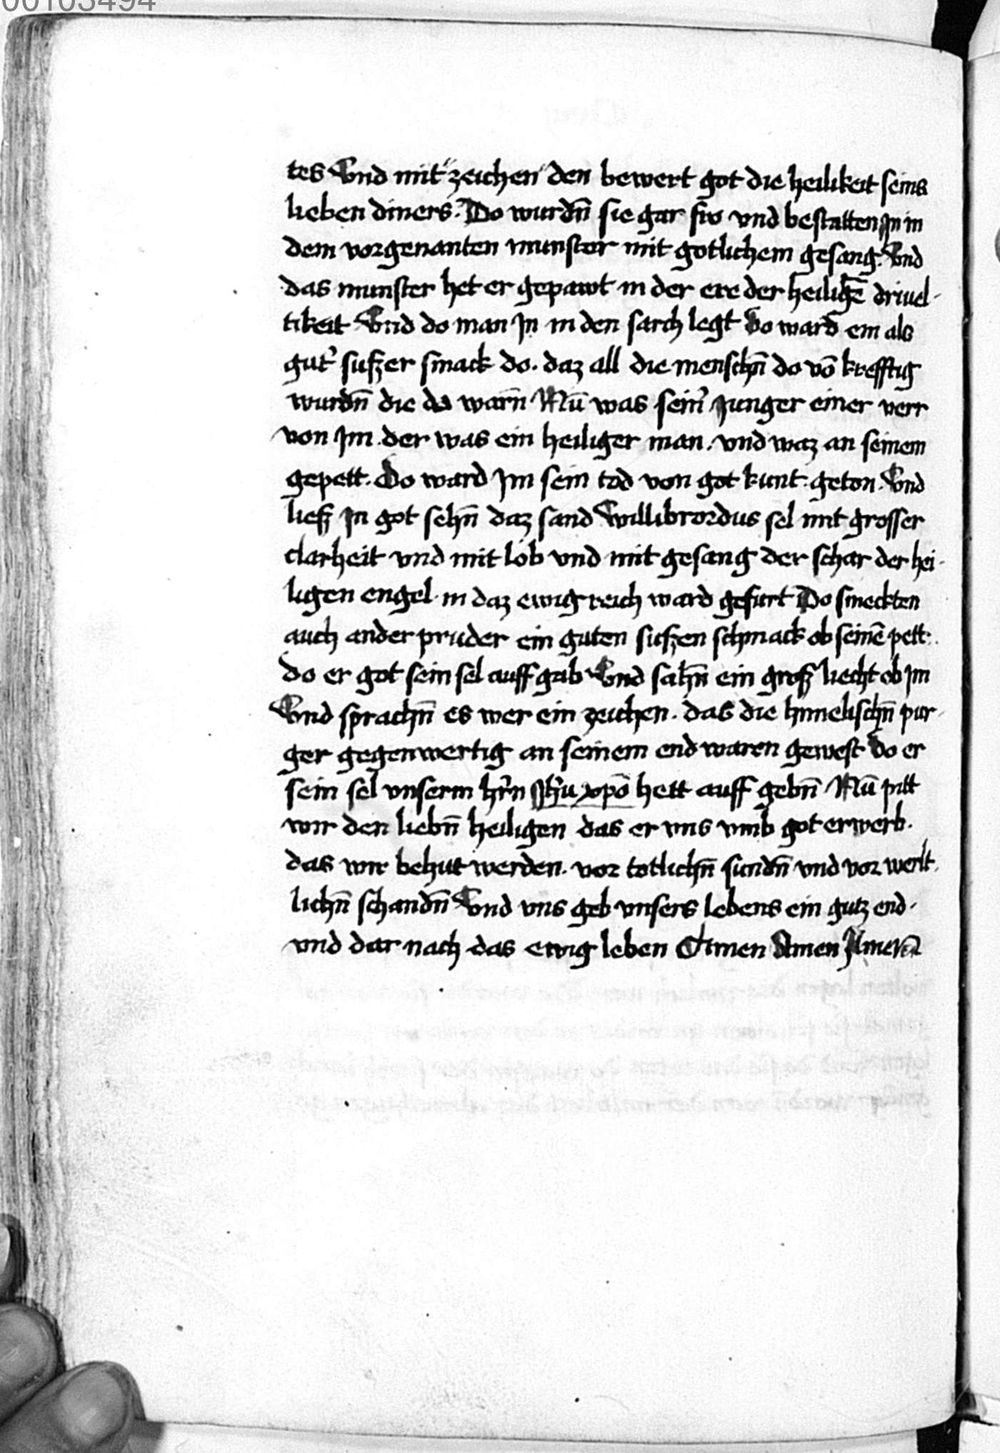 00103494
tes Vnd mit zeichen den bewert got die heilikeit seins
lieben diners. Do wurdn̄ sie gar fro vnd bestatten Jn in
dem vorgenanten munster mit gotlichem gesang. Vnd
das munster het er gepawt in der ere der heiligē driuel-
tikeit Vnd do man Jn in den sarch legt Do ward ein als
gut' sußer smack do. daz all die menschn̄ do vō krefftig
wurdn̄ die da warn̄ Nū was sein' Junger einer verr
von Jm. der was ein heiliger man. vnd waz an seinem
gepett. Do ward Jm sein tod von got kunt. geton. Vnd
ließ Jn got sehn̄ daz sand Willibrordus sel mit grosser
clarheit vnd mit lob vnd mit gesang der schar der hei-
ligen engel. in daz ewig reich ward gefurt Do smeckten
auch ander pruder ein guten sußen schmack ob seinē pett.
do er got sein sel auff gab Vnd sahn̄ ein groß liecht ob Jm
Vnd sprachn̄ es wer ein zeichen. das die himelischn̄ pur-
ger gegenwertig an seinem end waren gewest do er
sein sel vnserm hr̄n Jhū xpō hett auff gebn̄ Nū pitt
wir den liebn̄ heiligen das er vns vmb got erwerb.
das wir behut werden. vor totlichn̄ sundn̄ vnd vor werlt-
lichn̄ schandn̄ Vnd vns geb vnsers lebens ein gutz end.
vnd dar nach das ewig leben Amen Amen Amen